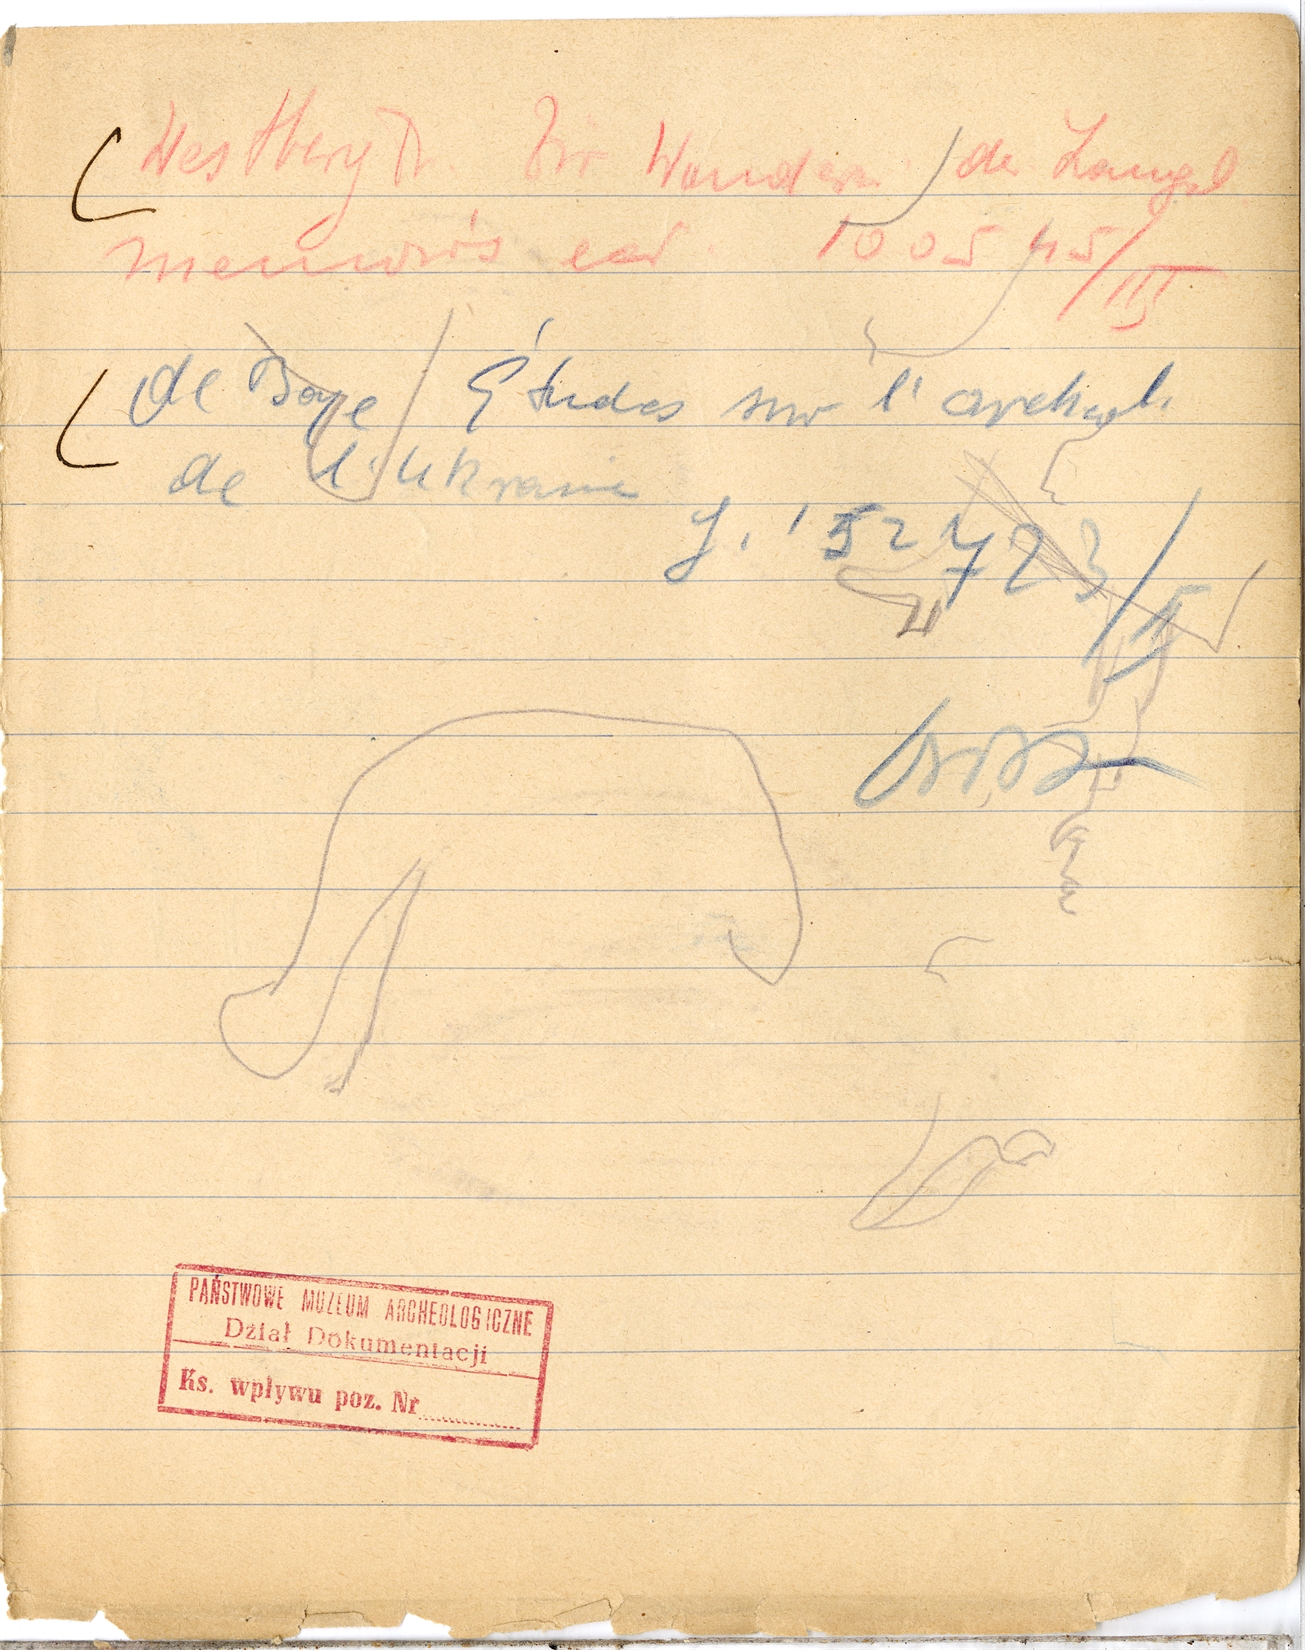 Westberg Fr. Zur Wander. der Lang
memoirs 100545/III
de Baye Études sur l'archeol.
de l'Ukraine
J. 52723/II
PAŃSTWOWE MUZEUM ARCHEOLOGICZNE
Dział Dokumentacji
Ks. wpływu poz. Nr